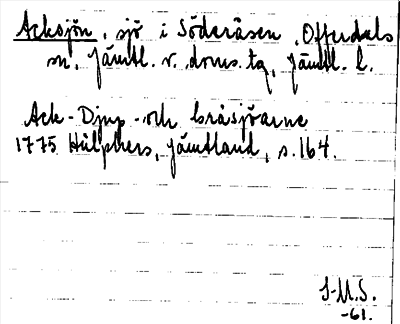 Acksjön, sjö i Söderåsen, Offerdals
sn, Jämtl. v. doms. tg, Jämtl. l.
Ack- Djup- och bråsjöarne
1775 Hülphers, Jämtland, s. 164.
S-M.S.
-61.